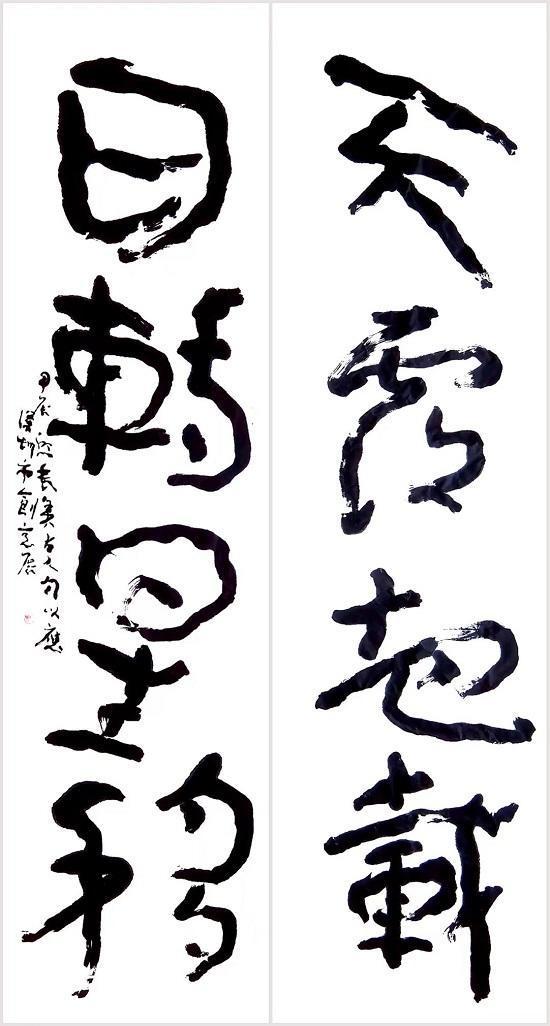 天覆地載
日轉星移
甲辰 書集古人句以應
深圳市創意展